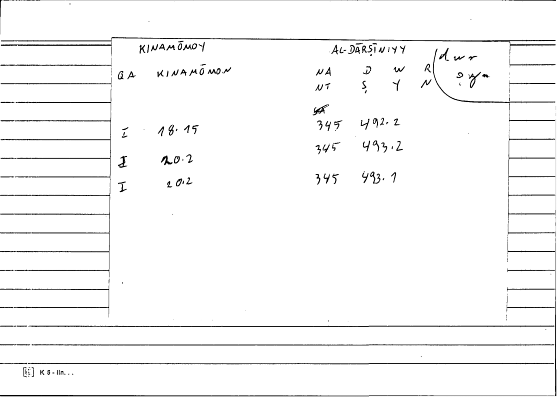 KINAMŌMOY AL-DĀRṢĪNIYY
GA KINAMŌMON NA D W R dwr
NT Ṣ Y N ṣyn
I 18.15 345 492.2
I 20.2 345 493.2
I 20.2 345 493.1
K 8 - lin...